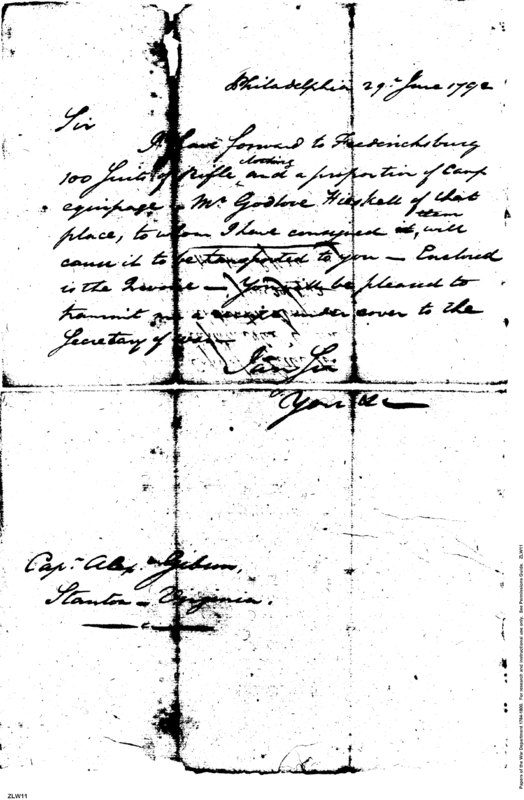 Philadelphia 29th June 1792
Sir
I have forward to Fredericksburg
clothing
100 Suits of Rifle and a proportion of Camp
equipage Mr Godlove Heiskell of that
place, to whom I have consigned it, them will
cause it to be transported to you — Enclosed
is the Invoice — You will be pleased to
transmit me a receipt under cover to the
Secretary of war
I am Sir
Your &c
Capn Alexr Gibson,
Stanton — Virginia.
Papers of the War Department 1784-1800. For research and instructional use only. See Permissions Guide. ZLW11
ZLW11